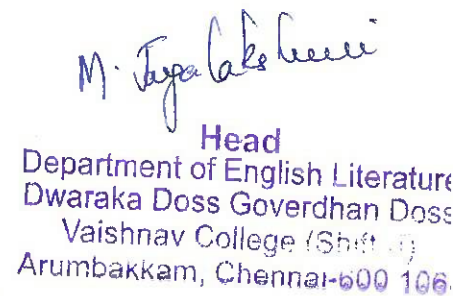 M. Jayalakshmi
Head
Department of English Literature
Dwaraka Doss Goverdhan Doss
Vaishnav College (Shift
Arumbakkam, Chennai-600 106.